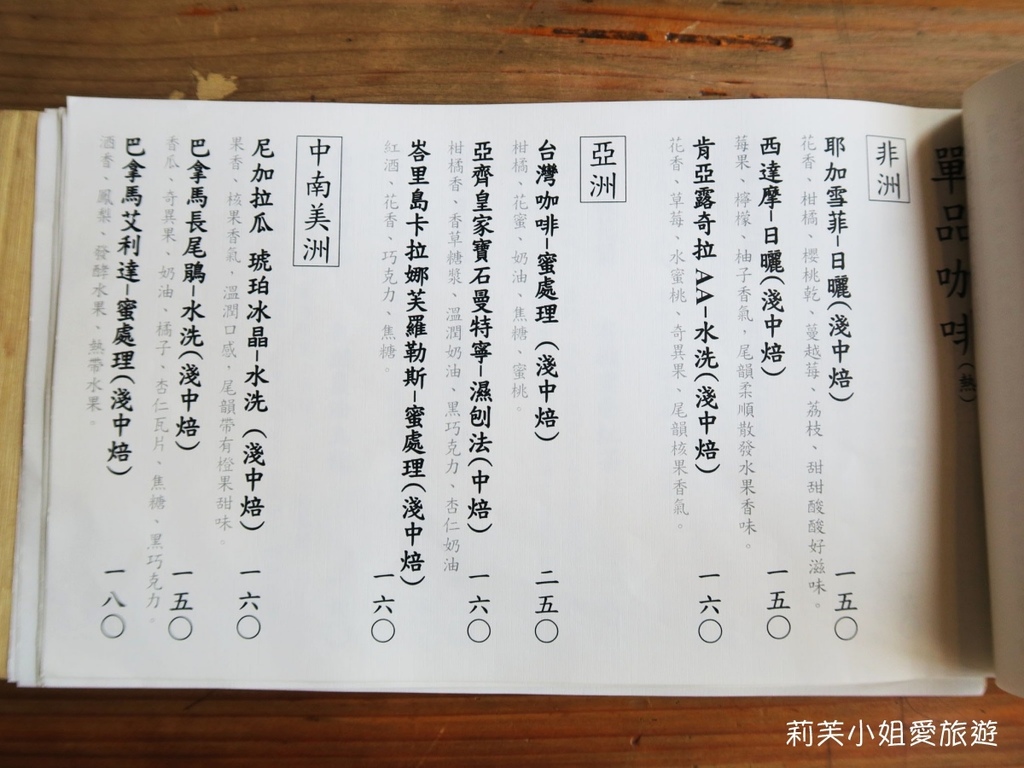 單品咖啡(熱)
非洲
耶加雪菲-日曬(淺中焙) 一五〇
花香、柑橘、櫻桃乾、蔓越莓、荔枝、甜甜酸酸好滋味。
西達摩-日曬(淺中焙) 一五〇
莓果、檸檬、柚子香氣,尾韻柔順散發水果香味。
肯亞露奇拉 AA-水洗(淺中焙) 一六〇
花香、草莓、水蜜桃、奇異果、尾韻核果香氣。
亞洲
台灣咖啡-蜜處理 (淺中焙) 二五〇
柑橘、花蜜、奶油、焦糖、蜜桃。
亞齊皇家寶石曼特寧-濕刨法(中焙) 一六〇
柑橘香、香草糖漿、溫潤奶油、黑巧克力、杏仁奶油
峇里島卡拉娜芙羅勒斯-蜜處理(淺中焙) 一六〇
紅酒、花香、巧克力、焦糖。
中南美洲
尼加拉瓜 琥珀冰晶-水洗 (淺中焙) 一六〇
果香、核果香氣,溫潤口感,尾韻帶有橙果甜味。
巴拿馬長尾鵑-水洗(淺中焙) 一五〇
香瓜、奇異果、奶油、橘子、杏仁瓦片、焦糖、黑巧克力。
巴拿馬艾利達-蜜處理(淺中焙) 一八〇
酒香、鳳梨、發酵水果、熱帶水果。
莉芙小姐愛旅遊